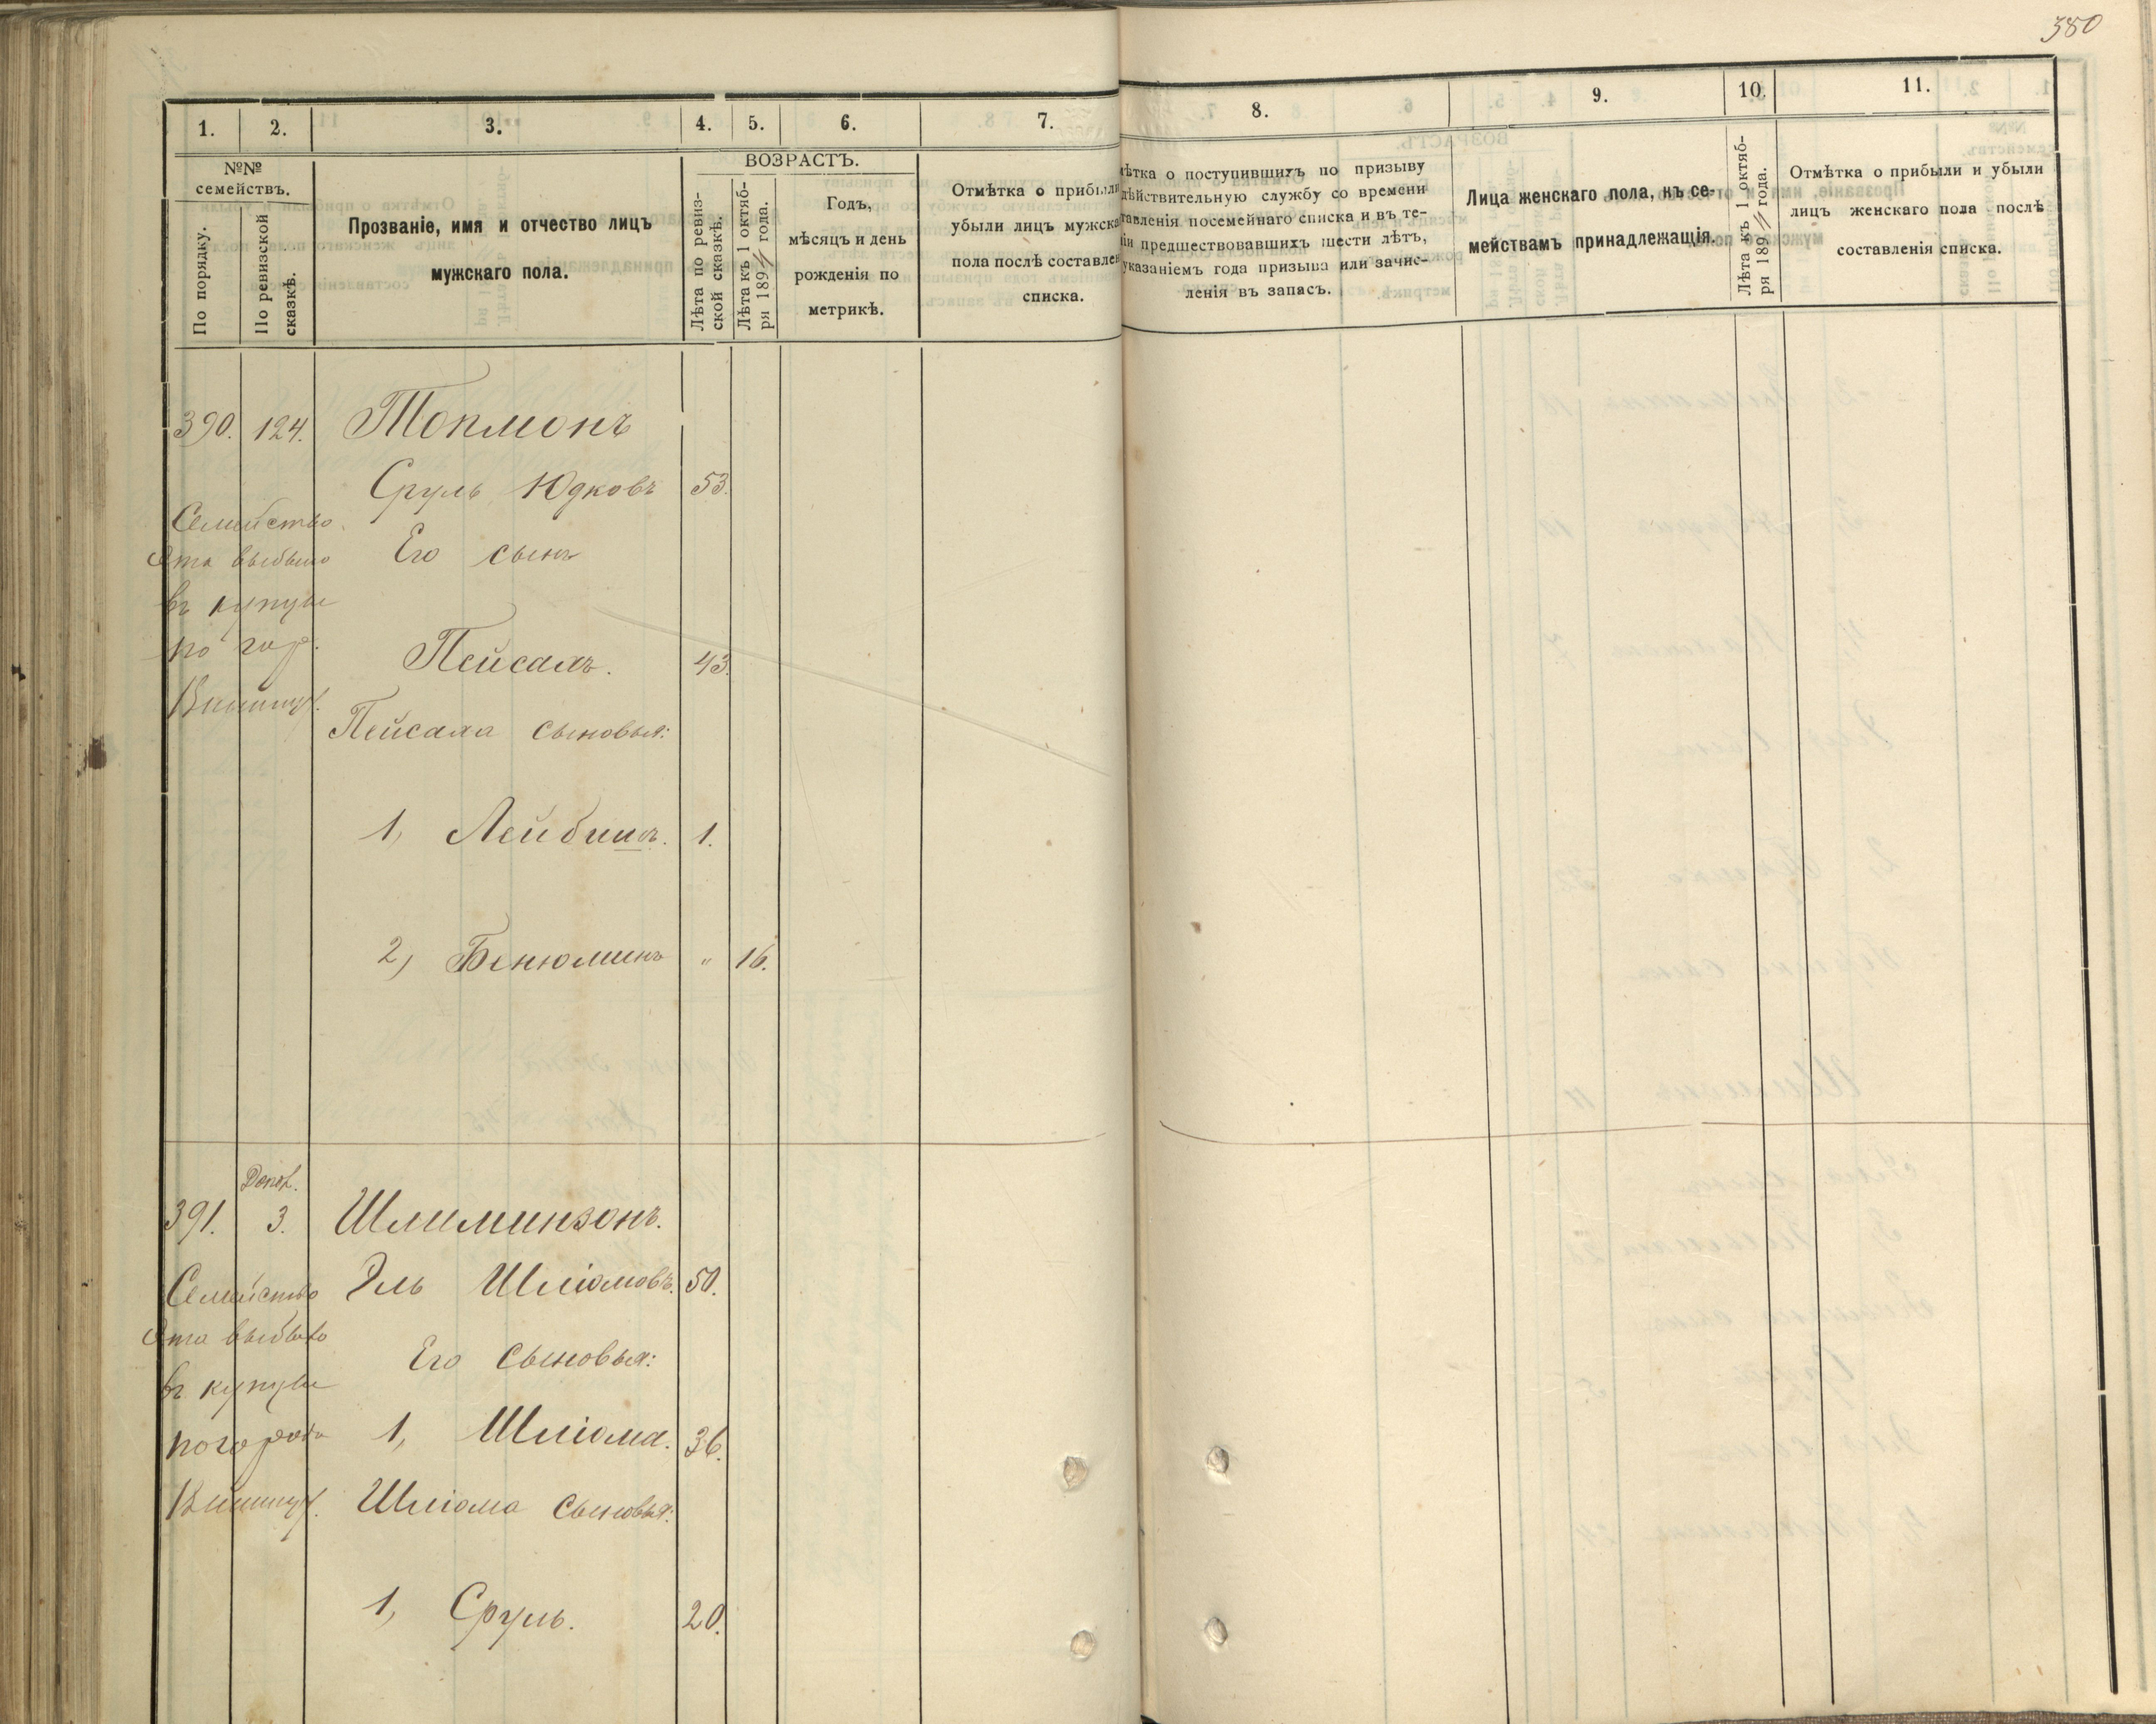 380
1. 2. 3. 4. 5. 6. 7. 8. 9. 10. 11.
№№ семействъ.
По порядку.
По ревизской сказкѣ.
Прозваніе, имя и отчество лицъ
мужскаго пола.
ВОЗРАСТЪ.
Лѣта по ревиз-
ской сказкѣ.
Лѣта къ 1 октяб-
ря 189 года.
Годъ,
мѣсяцъ и день
рожденія по
метрикѣ.
Отмѣтка о прибыли
убыли лицъ мужска
пола послѣ составлен
списка.
мѣтка о поступившихъ по призыву
дѣйствительную службу со времени
тавленія посемейнаго списка и въ те-
іи предшествовавшихъ шести лѣтъ,
указаніемъ года призыва или зачис-
ленія въ запасъ.
Лица женскаго пола, къ се-
мействамъ принадлежащія.
Лѣта къ 1 октяб-
ря 189 года.
Отмѣтка о прибыли и убыли
лицъ женскаго пола послѣ
составленія списка.
390. 124. Токмонъ
Сруль Юдковъ 53.
Семейство
Его сынъ
эта выбыло
въ купцы
по гор.
Пейсахъ. 43.
Пейсаха сыновья:
1, Лейбишъ. 1.
2, Бенюминъ " 16.
Допол.
391. 3. Шлиминзонъ.
Эль Шліомовъ. 50.
Семейство
эта выбыло
Его сыновья:
въ купцы
1, Шліома. 36.
по города
Шліома сыновья:
1, Сруль. 20.